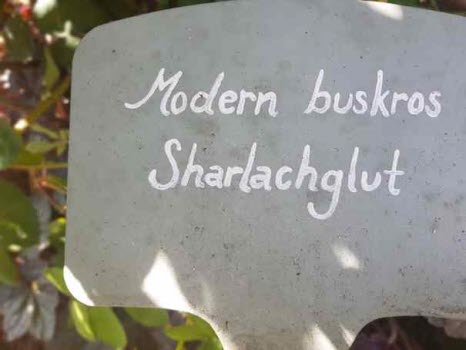 Modern buskros
Sharlachglut